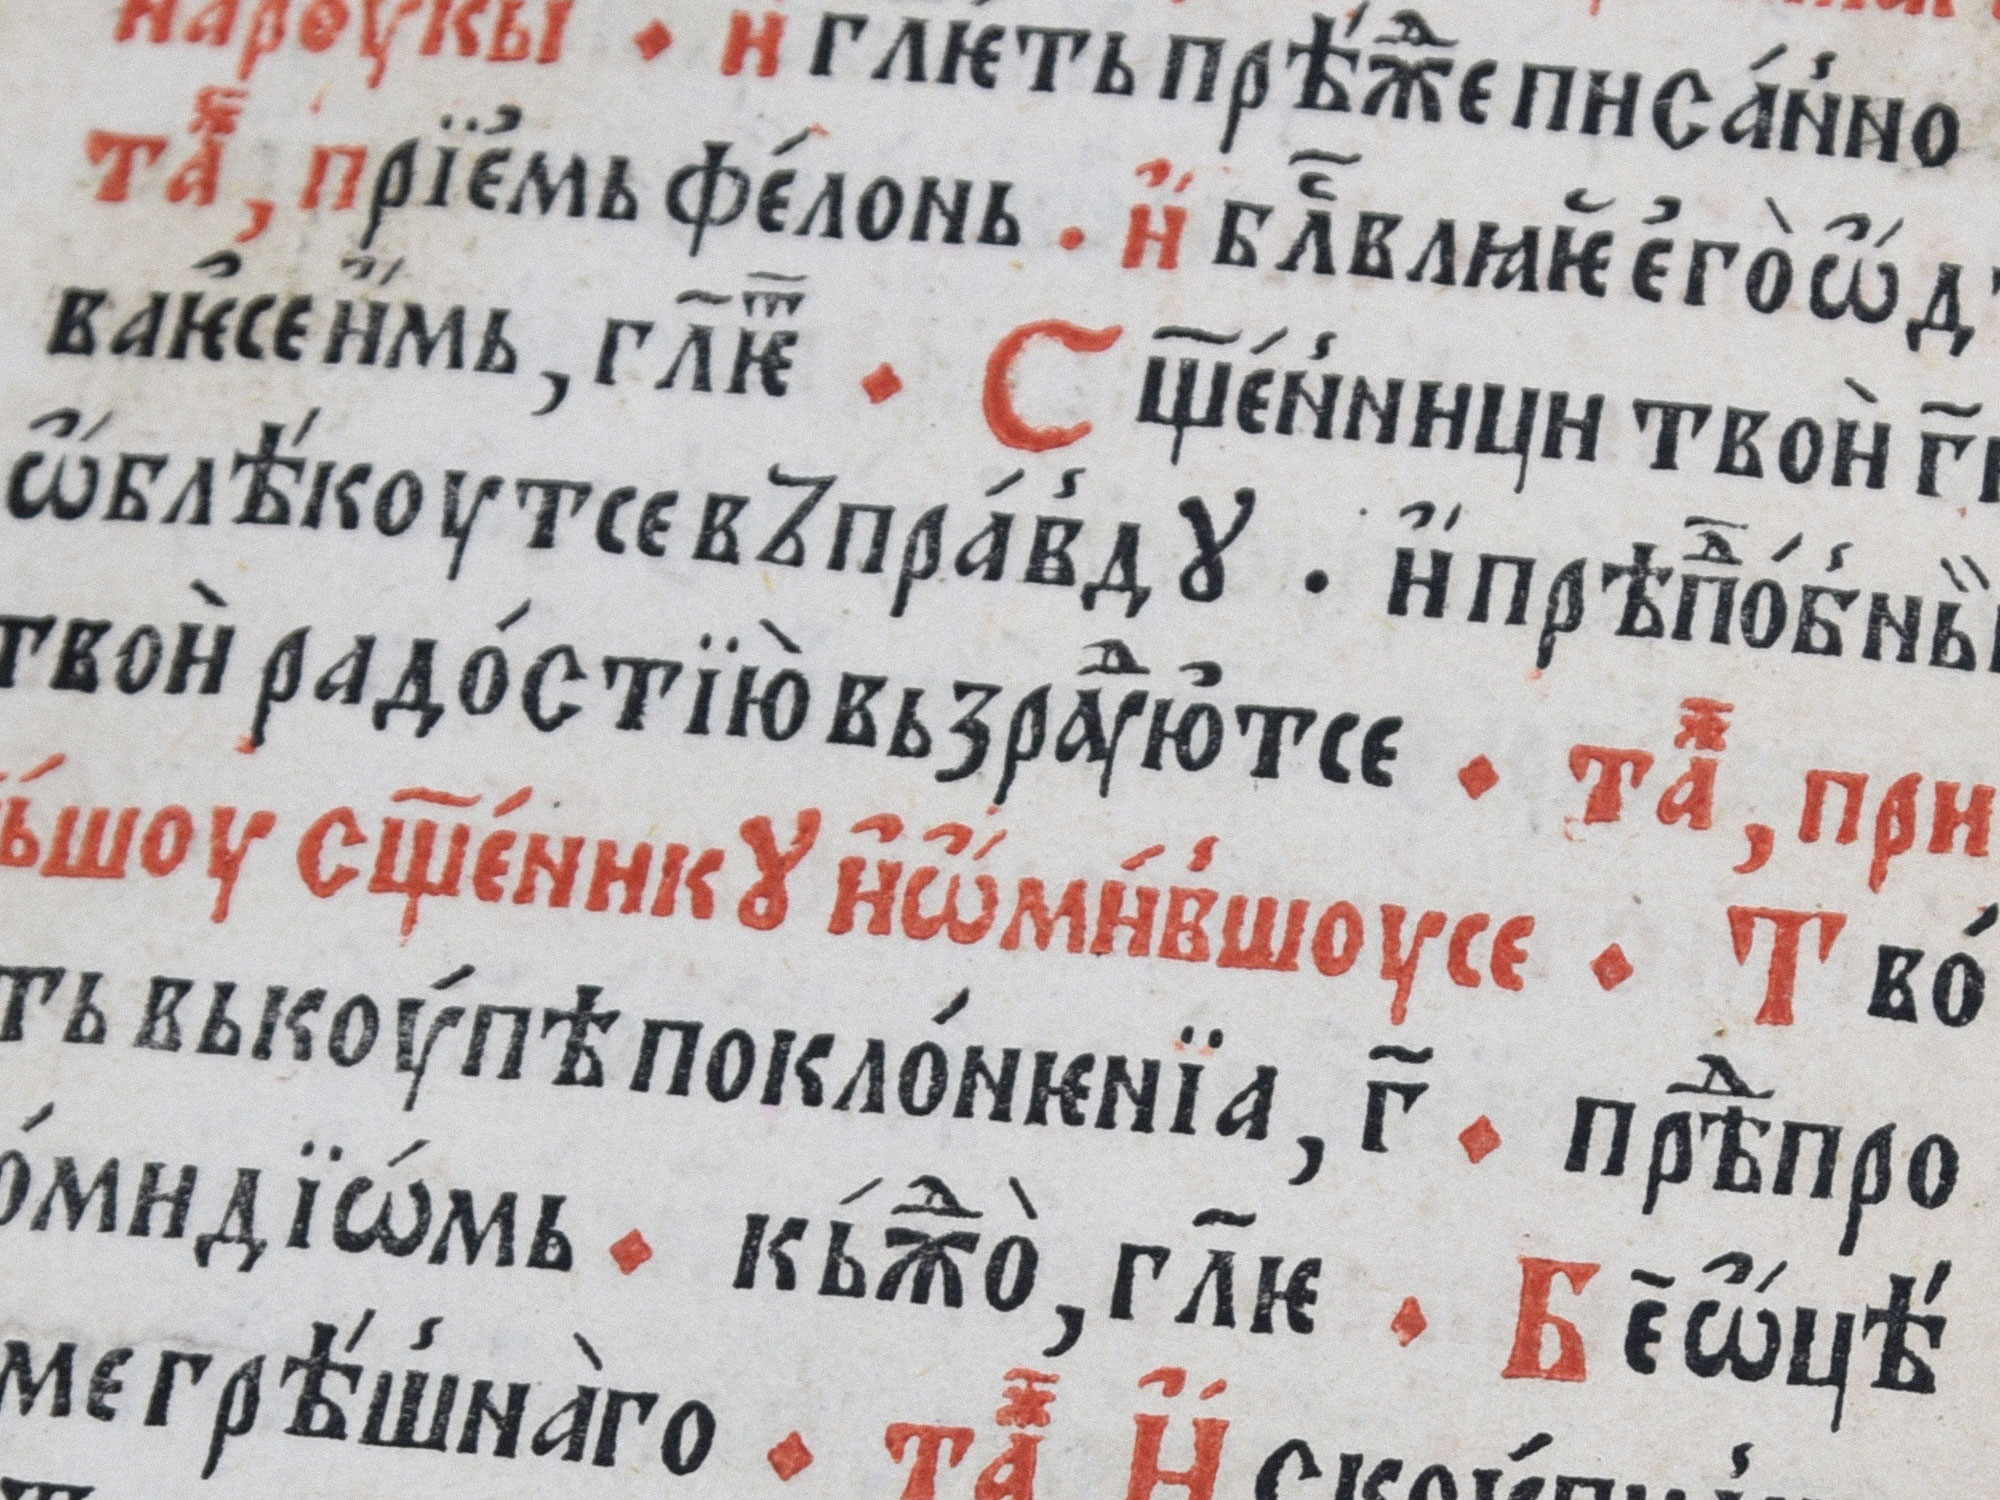 нароукы ⬥ и҆ гл҃ѥть прѣ́ⷤⷣе писа́н҆но
таⷤ, прїе҆мь фе́лонь . и҆҆́ бл҃ⷭ҇влꙗѥ̆ е҆го̀ ѿ҆ д
ваѥ҆се и҆́мь, гл҃ѥⷮ ⬥ Сщ҃е́н҆ници твоѝ г҃и
ѡ҆́блѣ́коутсе вꙁ пра́в҆дꙋ . и҆́ прѣпⷣо́б҆ны̏
твоѝ радо́стїю̀ вьзраⷣую҆тсе ⬥ таⷤ, при
ы́шоу сщ҃е́никꙋ и҆ ѡ҆́ми́в҆шоусе ⬥ Тво́
ть вькоу́пѣ поклѡ́нѥнїа, г҃ ⬥ прѣⷣпро
о́мидїѡ́мь ⬥ кьⷤⷣо̀, гл҃ѥ ⬥ Бе҃ ѡ҆́цѣ́
ме грѣ́ш҆на̀го ⬥ таⷤ И҆́